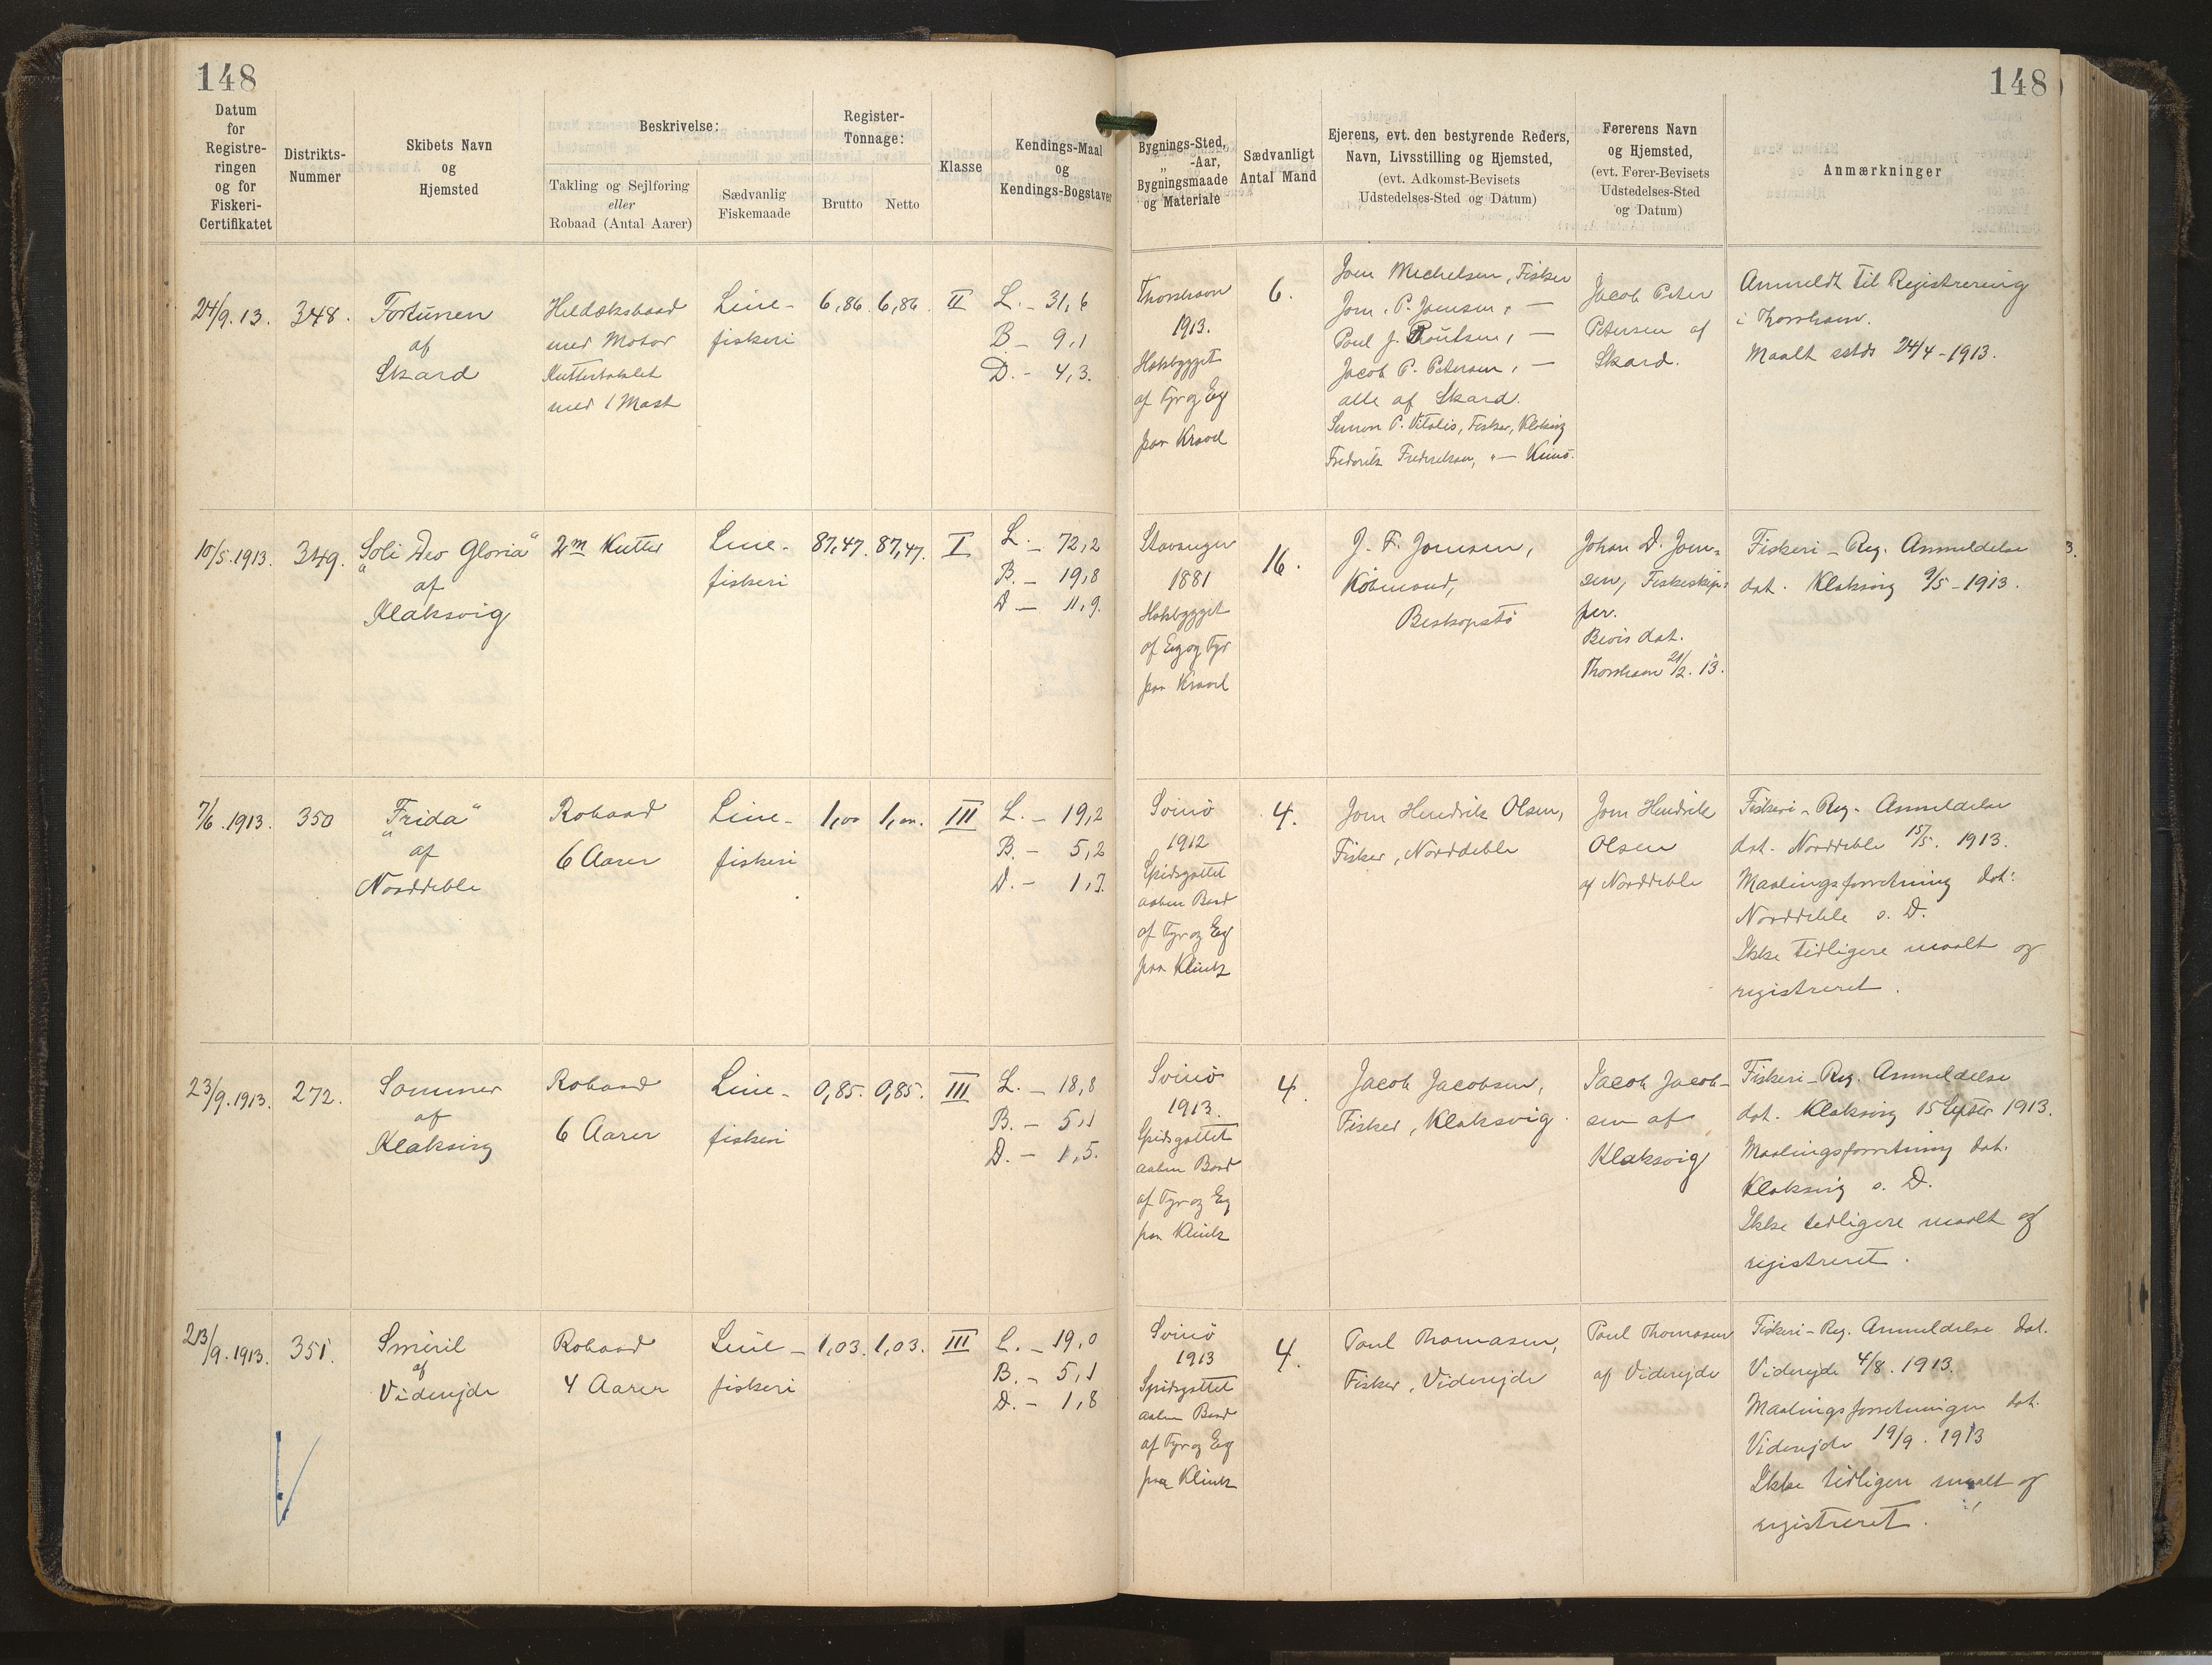 148
148
Datum
for
Registre-
ringen
og for
Fiskeri-
Certifikatet
Distrikts-
Nummer
Skibets Navn
og
Hjemsted
Beskrivelse:
Takling og Sejlføring
eller
Robaad (Antal Aarer)
Sædvanlig
Fiskemaade
Register-
Tonnage:
Brutto
Netto
Klasse
Kendings-Maal
og
Kendings-Bogstaver
Bygnings-Sted,
„ -Aar,
Bygningsmaade
og Materiale
Sædvanligt
Antal Mand
Ejerens, evt. den bestyrende Reders,
Navn, Livsstilling og Hjemsted,
(evt. Adkomst-Bevisets
Udstedelses-Sted og Datum)
Førerens Navn
og Hjemsted,
(evt. Fører-Bevisets
Udstedelses-Sted
og Datum)
Anmærkninger
24/9. 13.
348.
Fortunen
af
Skard
Heldæksbaad
med Motor
Kuttertaklet
med 1 Mast
Line-
fiskeri
6,86.
6,86
II
L. - 31,6
B - 9,1
D. - 4,3.
Thorshavn
1913.
Hækbygget
af Fyr og Eg
paa Kravel
6.
Joen Michelsen, Fisker
Joen. P. Joensen, —
Poul J. Poulsen, —
Jacob P. Petersen, —
alle af Skard.
Simon P. Vitalis, Fisker, Klaksvig
Frederik Frederiksen, „ — Kunø.
Jacob Peter
Petersen af
Skard.
Anmeldt til Registrering
i Thorshavn.
Maalt sstds 24/4 - 1913.
10/5. 1913.
349.
„Soli Deo Gloria“
af
Klaksvig
2m Kutter
Line-
fiskeri
87,47.
87,47.
I
L. - 72,2
B. - 19,8
D - 11,9.
Stavanger
1881
Hækbygget
af Eg og Fyr
paa Kravel
16.
J. F. Joensen,
Købmand,
Biskopstø
Johan D. Joen-
sen, Fiskeskip-
per.
Bevis dat.
Thorshavn 21/2. 13.
Fiskeri-Reg. Anmeldelse
dat. Klaksvig 9/5 - 1913.
7/6. 1913.
350
„Frida“
af
Norddeble
Robaad
6 Aarer
Line-
fiskeri
1,00
1,00.
III
L. - 19,2
B. - 5,2
D. - 1,7.
Svinø
1912
Spidsgattet
aaben Baad
af Fyr og Eg
paa Klink
4.
Joen Hendrik Olsen,
Fisker, Norddeble
Joen Hendrik
Olsen
af Norddeble
Fiskeri-Reg. Anmeldelse
dat. Norddeble 15/5. 1913.
Maalingsforretning dat:
Norddeble s. D.
Ikke tidligere maalt og
registreret.
23/9. 1913.
272.
Sommer
af
Klaksvig
Robaad
6 Aarer
Line-
fiskeri
0,85.
0,85.
III
L. - 18,8
B. - 5,1
D. - 1,5.
Svinø
1913.
Spidsgattet
aaben Baad
af Fyr og Eg
paa Klink
4.
Jacob Jacobsen,
Fisker, Klaksvig.
Jacob Jacob-
sen af
Klaksvig
Fiskeri-Reg. Anmeldelse
dat. Klaksvig 15 Septbr 1913.
Maalingsforretning dat.
Klaksvig s. D.
Ikke tidligere maalt og
registreret.
23/9. 1913.
351.
Smiril
af
Viderejde
Robaad
4 Aarer
Line-
fiskeri
1,03.
1,03.
III
L. - 19,0
B. - 5,1
D. - 1,8
Svinø
1913
Spidsgattet
aaben Baad
af Fyr og Eg
paa Klink
4.
Poul Thomasen,
Fisker, Viderejde
Poul Thomasen
af Viderejde
Fiskeri-Reg. Anmeldelse dat.
Viderejde 4/8. 1913.
Maalingsforretningen dat.
Viderejde 19/9. 1913
Ikke tidligere maalt og
registreret.